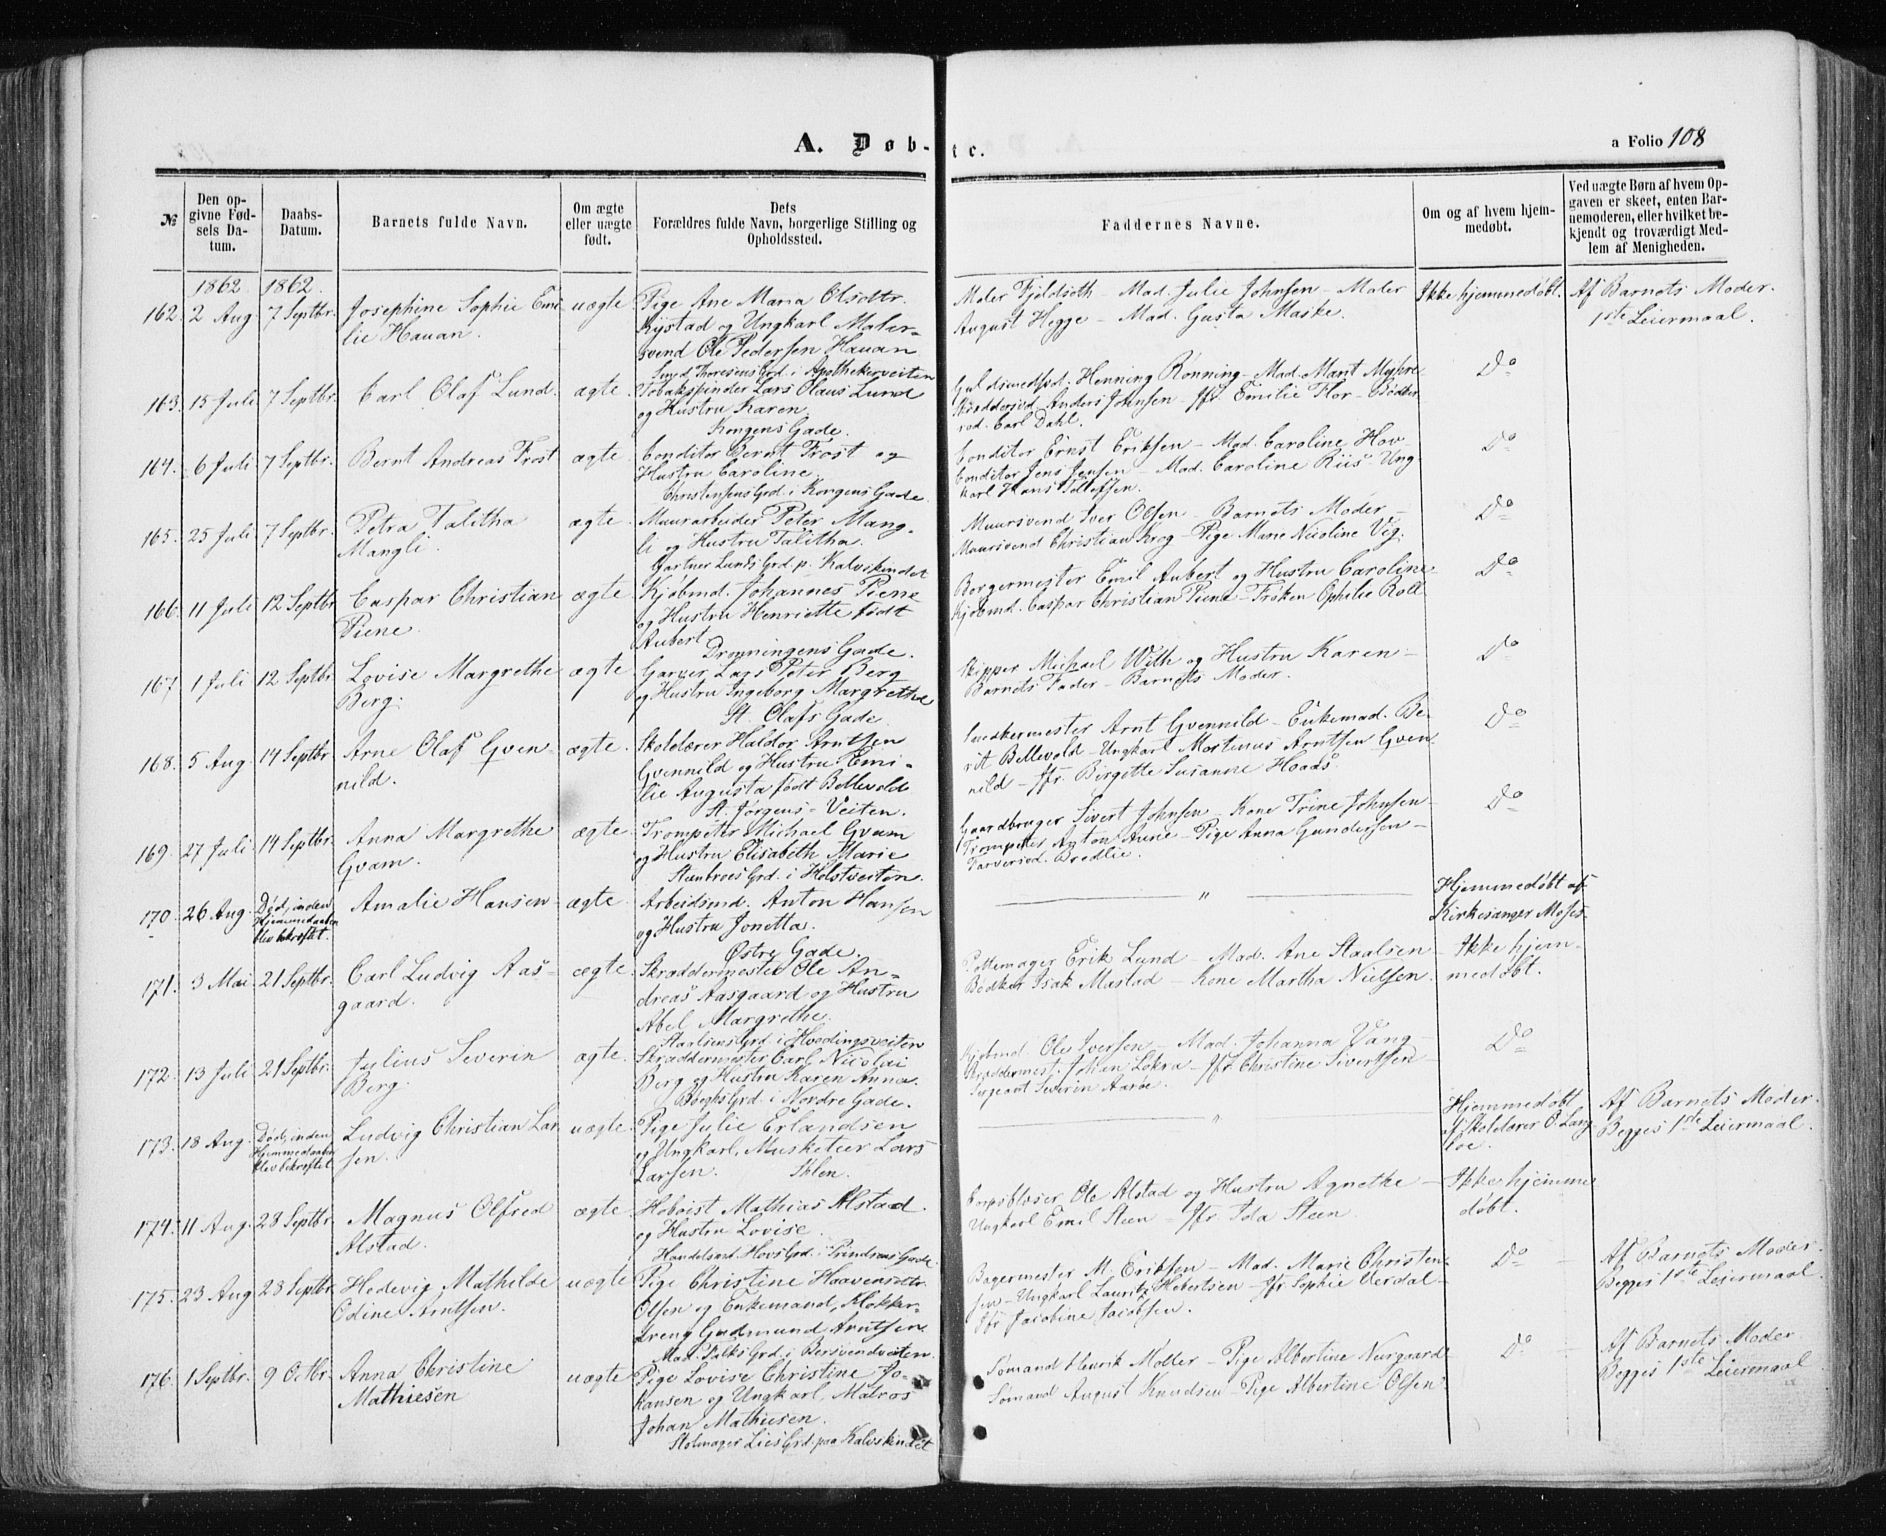 A. Døb- tc.
a Folio 108
№ Den opgivne Fødsels Datum. Daabs-Datum. Barnets fulde Navn. Om ægte eller uægte født. Dets Forældres fulde Navn, borgerlige Stilling og Opholdssted. Faddernes Navne. Om og af hvem hjemmedøbt. Ved uægte Børn af hvem Opgaven er skeet, enten Barnemoderen, eller hvilket bekjendt og troværdigt Medlem af Menigheden.
1862. 1862.
162. 2 Aug. 7 Septbr. Josephine Sophie Emi-
lie Hauan.
uægte
Pige Ane Maria Olsdttr.
Rystad og Ungkarl Maler-
svend Ole Pedersen Hauan
Smed Thoresens Grd. i Apothekerveiten
Maler Fjeldseth – Mad. Julie Johnsen – Maler
August Hegge – Mad. Gusta Maske.
Ikke hjemmedøbt.
Af Barnets Moder.
1ste Leiermaal.
163. 15 Juli 7 Septbr. Carl Olaf Lund. ægte.
Tobakspinder Lars Olaus Lund
og Hustru Karen.
Kongens Gade.
Guldsmedsvd. Henning Rønning – Mad. Marit Myhre
Skræddersvd. Anders Johnsen – Jfr. Emilie Flor – Bødker
svd. Carl Dahl.
Do
164. 6 Juli 7 Septbr. Bernt Andreas Frost ægte.
Conditor Bernt Frost og
Hustru Caroline.
Christensens Grd. i Kongens Gade.
Conditor Ernst Eriksen – Mad. Caroline Hov
Conditor Jens Jensen – Mad. Caroline Riis – Ung-
karl Hans Tellefsen.
Do
165. 25 Juli 7 Septbr. Petra Talitha
Mangli.
ægte.
Muurarbeider Peter Mang-
li og Hustru Talitha.
Gartner Lunds Grd. p. Kalvskindet
Muursvend Iver Olsen – Barnets Moder –
Muursvend Christian Krog – Pige Marie Nicoline Vig.
Do
166. 11 Juli 12 Septbr. Caspar Christian
Piene.
ægte
Kjøbmd. Johannes Piene
og Hustru Henriette født
Aubert
Dronningens Gade.
Borgermester Emil Aubert og Hustru Caroline
Kjøbmd. Caspar Christian Piene – Frøken Ophilie Roll
Do
167. 1 Juli 12 Septbr. Lovise Margrethe
Berg.
ægte
Garver Lars Peter Berg
og Hustru Ingeborg Margrethe
St. Olafs Gade.
Skipper Michael With og Hustru Karen –
Barnets Fader – Barnets Moder.
Do
168. 5 Aug. 14 Septbr. Arne Olaf Gven-
nild.
ægte.
Skolelærer Haldor Arntsen
Gvennild og Hustru Emi-
lie Augusta født Bellevold
St. Jørgens-Veiten.
Snedkermester Arnt Gvennild – Enkemad. Be-
rit Bellevold – Ungkarl Mortinus Arntsen Gven
nild – Jfr. Birgitte Susanne Haads.
Do
169. 27 Juli 14 Septbr. Anna Margrethe
Gvam.
ægte.
Trompeter Michael Gvam
og Hustru Elisabeth Marie
Steenbroes Grd. i Holstveiten.
Gaardbruger Sivert Johnsen – Kone Trine Johnsen –
Trompeter Anton Aune – Pige Anna Gundersen –
Farversvd. Bredlie.
Do
170. 26 Aug. Død, inden
Hjemmedaaben
blev bekræftet.
Amalie Hansen ægte.
Arbeidsmd. Anton Hansen
og Hustru Jonetta.
Østre Gade.
"
Hjemmedøbt af
Kirkesanger Moses.
171. 3 Mai 21 Septbr. Carl Ludvig Aas-
gaard.
ægte
Skræddermester Ole An-
dreas Aasgaard og Hustru
Abel Margrethe.
Staalsens Grd. i Hvedingsveiten
Pottemager Erik Lund – Mad. Ane Staalsen –
Bødker Isak Mastad – Kone Martha Nielsen.
Ikke hjem-
medøbt.
172. 13 Juli 21 Septbr. Julius Severin
Berg.
ægte.
Skræddermester Carl Nicolai
Berg og Hustru Karen Anna.
Boeghs Grd. i Nordre Gade.
Kjøbmd. Ole Iversen – Mad. Johanna Vang –
Skræddermest. Johan Løkra – Jfr. Christine Sivertsen –
Sergeant Severin Aarøe.
Do
173. 18 Aug. Død, inden
Hjemmedaaben
blev bekræftet.
Ludvig Christian Lar
sen.
uægte.
Pige Julie Erlandsen
og Ungkarl, Musketeer Lars
Larsen. Ihlen.
"
Hjemmedøbt
af Skolelærer O. Lang-
loe.
Af Barnets Moder.
Begges 1ste Leiermaal.
174. 11 Aug. 28 Septbr. Magnus Olfred
Alstad.
ægte.
Hoboist Mathias Alstad.
og Hustru Lovise.
Handelsmd. Hovs Grd. i Prindsens Gade
Corpsblæser Ole Alstad og Hustru Agnethe –
Ungkarl Emil Steen – Jfr. Ida Steen.
Ikke hjemme
døbt.
175. 23 Aug. 28 Septbr. Hedevig Mathilde
Odine Arntsen.
uægte
Pige Christine Haavensdttr.
Olsen og Enkemand, Klokker-
dreng Gudmund Arntsen
Mad. Falks Grd. i Bersvendveiten.
Bagermester M. Eriksen – Mad. Marie Christen-
sen – Ungkarl Lauritz Hebertsen – Jfr. Sophie Verdal –
Jfr. Jacobine Jacobsen.
Do
Af Barnets Moder.
Begges 1ste Leiermaal.
176. 1 Septbr. 9 Octbr. Anna Christine
Mathiesen
uægte
Pige Lovise Christine Jo-
hansen og Ungkarl, Matros
Johan Mathiesen.
Stolmager Lies Grd. paa Kalvskindet
Sømand Henrik Møller – Pige Albertine Nurgaard
Sømand August Knudsen – Pige Albertine Olsen
Do
Af Barnets Moder
Begges 1ste Leiermaal